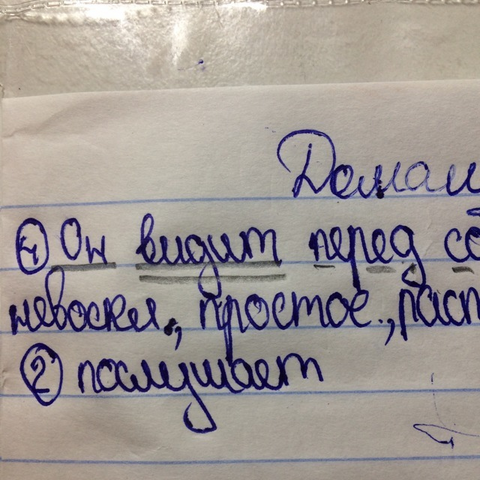 Домаш
① Он видит перед со
невоскл., простое., расп
② послушает